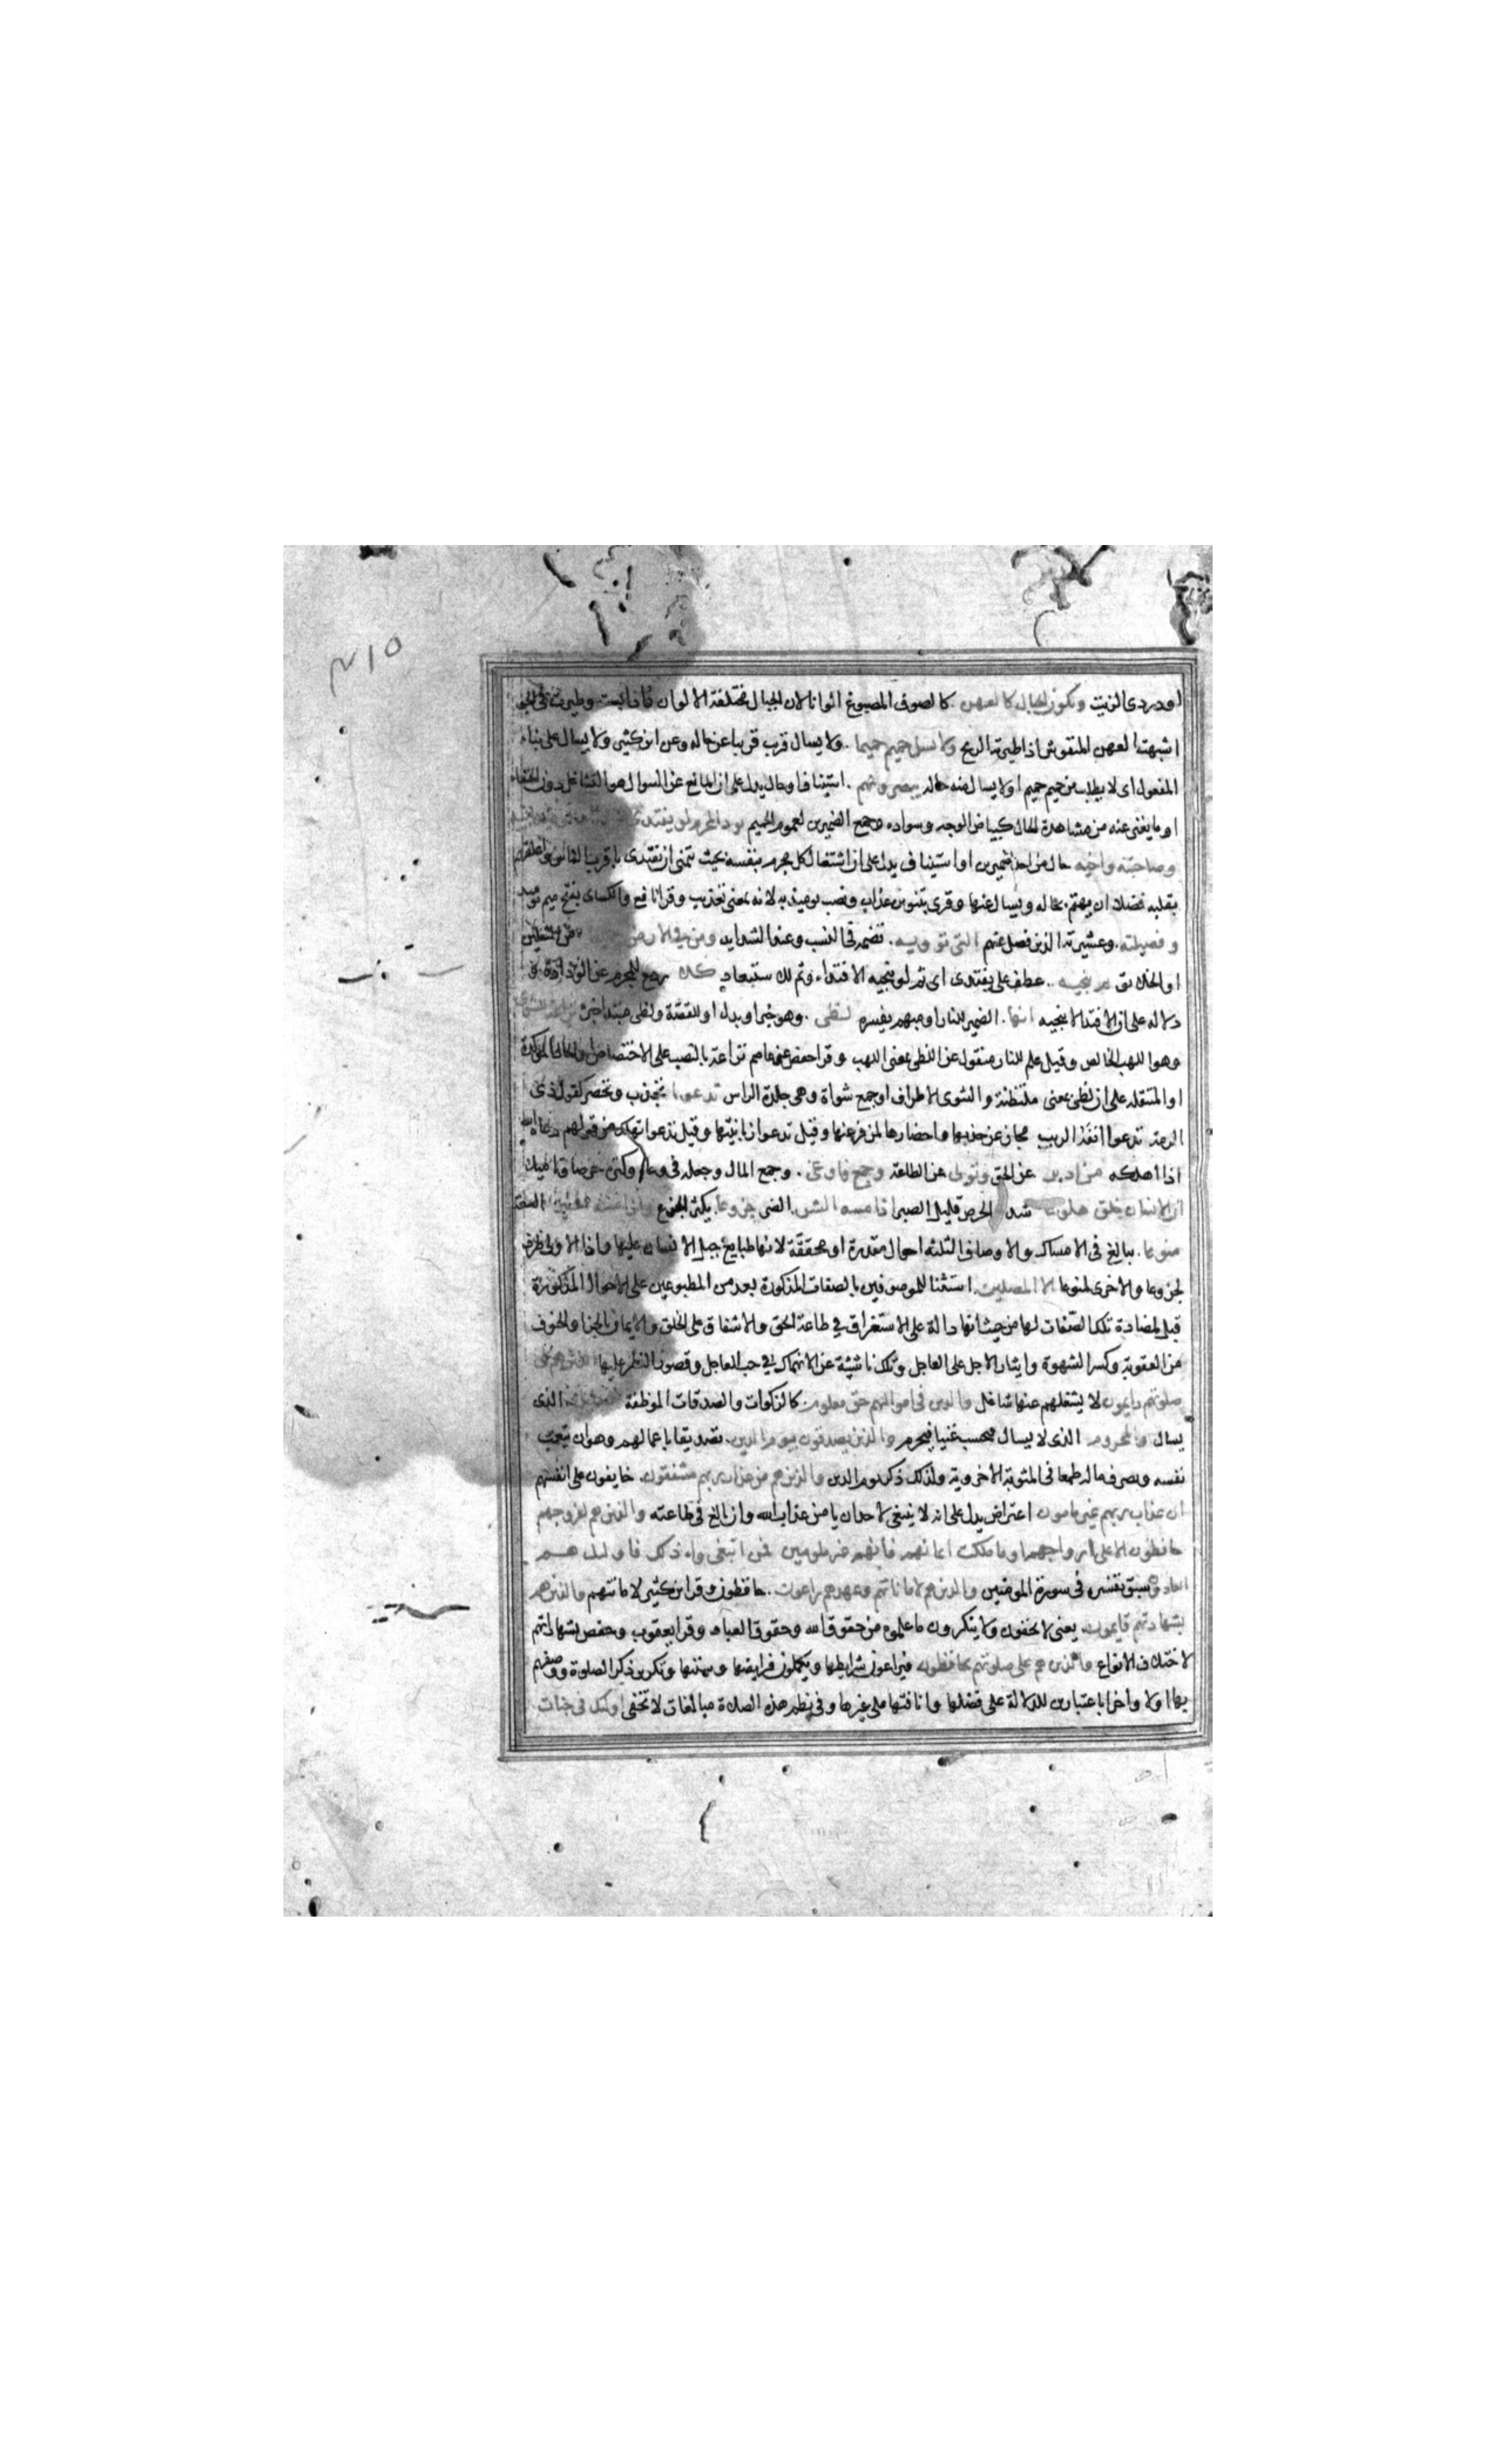 ٣١٥
او دردى الزيت وتكون الجبال كالعهن كالصوف المصبوغ الوانا لان الجبال مختلفة الالوان فاذا بست وطيرت فى الجو
اشبهت العهن المنفوش اذا طيرته الريح ولا يسل حميم حميما ولا يسال قريب قريبا عن حاله وعن ابن كثير ولا يسال على بناء
المفعول اى لا يطلب من حميم حميم او لا يسال منه حاله يبصرونهم استيناف او حال يدل على ان المانع عن السوال هو التشاغل دون الخفاء
او ما يغنى عنه من مشاهدة الحال كبياض الوجه وسواده وجمع الضميرين لعموم الحميم يود المجرم لو يفتدى
وصاحبته واخيه حال من احد الضميرين او استيناف يدل على ان اشتغال كل مجرم بنفسه بحيث يتمنى ان يفتدى باقرب الناس واعلقهم
بقلبه فضلا ان يهتم بحاله ويسال عنها وقرى بتنوين عذاب ونصب يوميذ به لانه بمعنى تعذيب وقرا نافع والكساى بفتح ميم يوميذ
وفصيلته وعشيرته الذين فصل عنهم التى تؤويه تضمه فى النسب وعند الشدايد ومن فى الارض جميعا من الثقلين
او الخلايق ثم ينجيه عطف على يفتدى اى ثم لو ينجيه الافتداء وثم للاستبعاد كلا ردع للمجرم عن الودادة
دلاله على ان الافتدا لا ينجيه انها الضمير للنار او مبهم يفسره لظى وهو خبر او بدل او للقصة ولظى مبتدا خبره
وهو اللهب الخالص وقيل علم للنار منقول عن اللظى بمعنى اللهب وقرا حفص عن عاصم نزاعة بالنصب على الاختصاص او الحال الموكدة
او المتنقله على ان لظى بمعنى متلظية والشوى الاطراف او جمع شواة وهى جلدة الراس تدعوا تجذب وتحضر كقول ذى
الرمة تدعوا انفه الريب مجاز عن جذبها واحضارها لمن فر عنها وقيل تدعوا زبانيتها وقيل تدعوا تهلك من قولهم دعاه الله
اذا اهلكه من ادبر عن الحق وتولى عن الطاعة وجمع فاوعى وجمع المال وجعله فى وعاء وكنزه حرصا وتاميلا
ان الانسان خلق هلوعا شديد الحرص قليل الصبر اذا مسه الشر الضر جزوعا يكثر الجزع واذا مسه الخير السعة
منوعا يبالغ فى الامساك والاوصاف الثلثه احوال مقدرة او محققة لانها طبايع جبل الانسان عليها واذا الاولى ظرف
لجزوعا والاخرى لمنوعا الا المصلين استثنا للموصوفين بالصفات المذكورة بعد من المطبوعين على الاحوال المذكورة
قبل لمضادة تلك الصفات لها من حيث انها دالة على الاستغراق فى طاعة الحق والاشفاق على الخلق والايمان بالجزا والخوف
من العقوبة وكسر الشهوة وايثار الاجل على العاجل وتلك ناشية عن الانهماك فى حب العاجل وقصور النظر عليها الذين هم على
صلوتهم دايمون لا يشغلهم عنها شاغل والذين فى اموالهم حق معلوم كالزكوات والصدقات الموظفة للسايل الذى
يسال والمحروم الذى لا يسال فيحسب غنيا فيحرم والذين يصدقون بيوم الدين تصديقا باعمالهم وهو ان يتعب
نفسه ويصرف ماله طمعا فى المثوبة الاخروية ولذلك ذكر يوم الدين والذين هم من عذاب ربهم مشفقون خايفون على انفسهم
ان عذاب ربهم غير مامون اعتراض يدل على انه لا ينبغى لاحد ان يامن عذاب الله وان بالغ فى طاعته والذين هم لفروجهم
حافظون الا على ازواجهم او ما ملكت ايمانهم فانهم غير ملومين فمن ابتغى وراء ذلك فاوليك هم
العادون سبق تفسيره فى سورة المومنين والذين هم لاماناتهم وعهدهم راعون حافظون وقرا ابن كثير لامانتهم والذين هم
بشهادتهم قايمون يعنى لا يخفون ولا ينكرون ما علموه من حقوق الله وحقوق العباد وقرا يعقوب وحفص بشهاداتهم
لاختلاف الانواع والذين هم على صلوتهم يحافظون فيراعون شرايطها ويكملون فرايضها وسننها وتكرير ذكر الصلوة ووصفهم
بها اولا واخرا باعتبارين للدلالة على فضلها وانافتها على غيرها وفى نظم هذه الصلاة مبالغات لا تخفى اوليك فى جنات